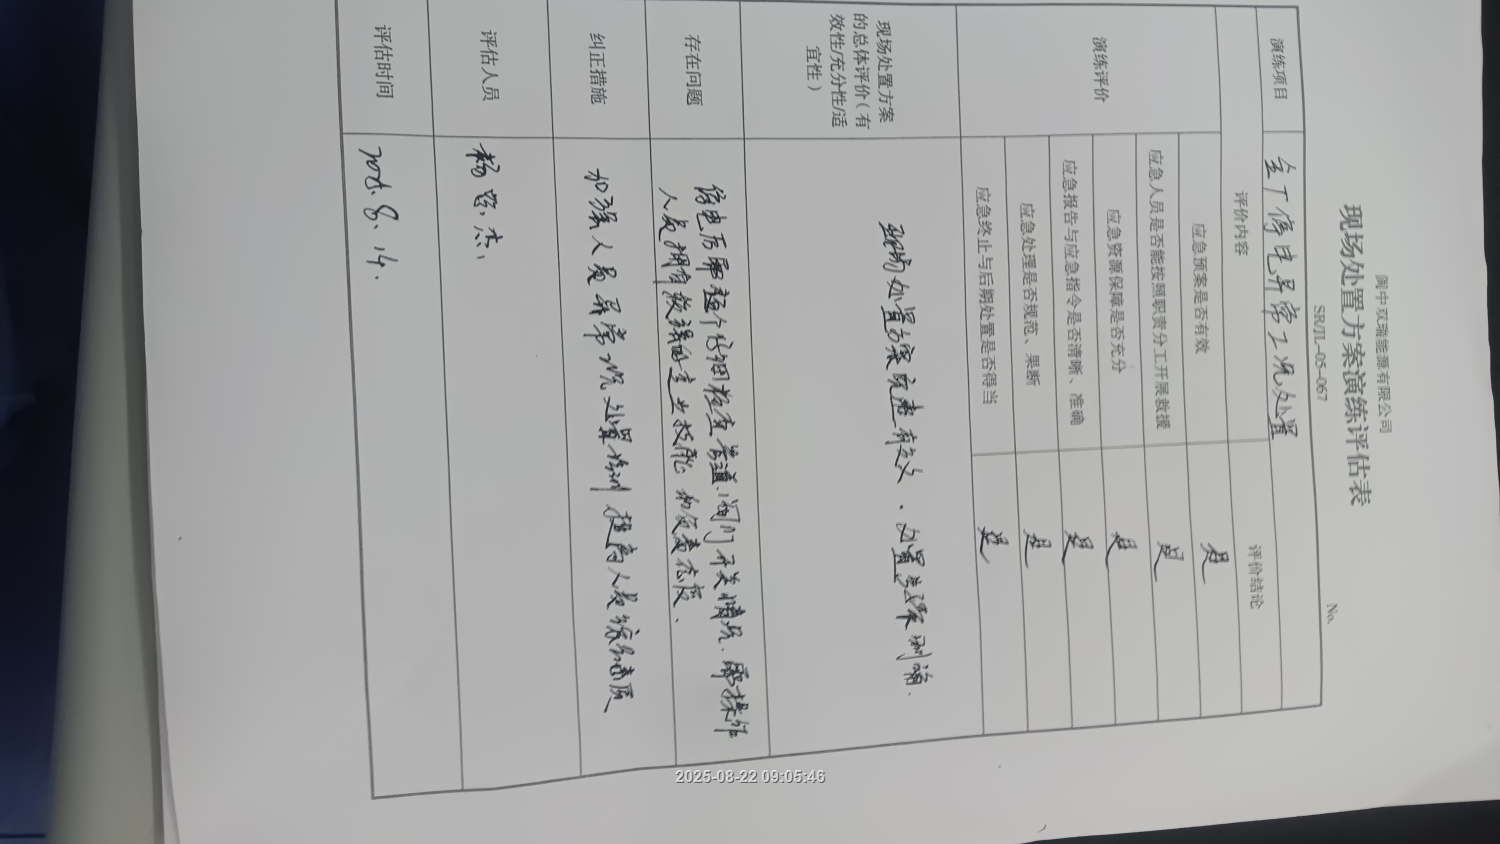 阆中双瑞能源有限公司
现场处置方案演练评估表
SR/JL-05-067
No.
演练项目 全厂停电异常工况处置
评价内容 评价结论
演练评价
应急预案是否有效 是
应急人员是否能按照职责分工开展救援 是
应急资源保障是否充分 是
应急报告与应急指令是否清晰、准确 是
应急处理是否规范、果断 是
应急终止与后期处置是否得当 是
现场处置方案
的总体评价（有
效性/充分性/适
宜性）
现场处置方案完善有效．处置步骤明确．
存在问题
停电后需逐个仔细检查普通阀门开关情况．需操作
人员拥有较强的专业技能和反事故
纠正措施
加强人员异常情况处置培训提高人员综合素质
评估人员
杨
杰
评估时间
8.14.
2025-08-22 09:05:46